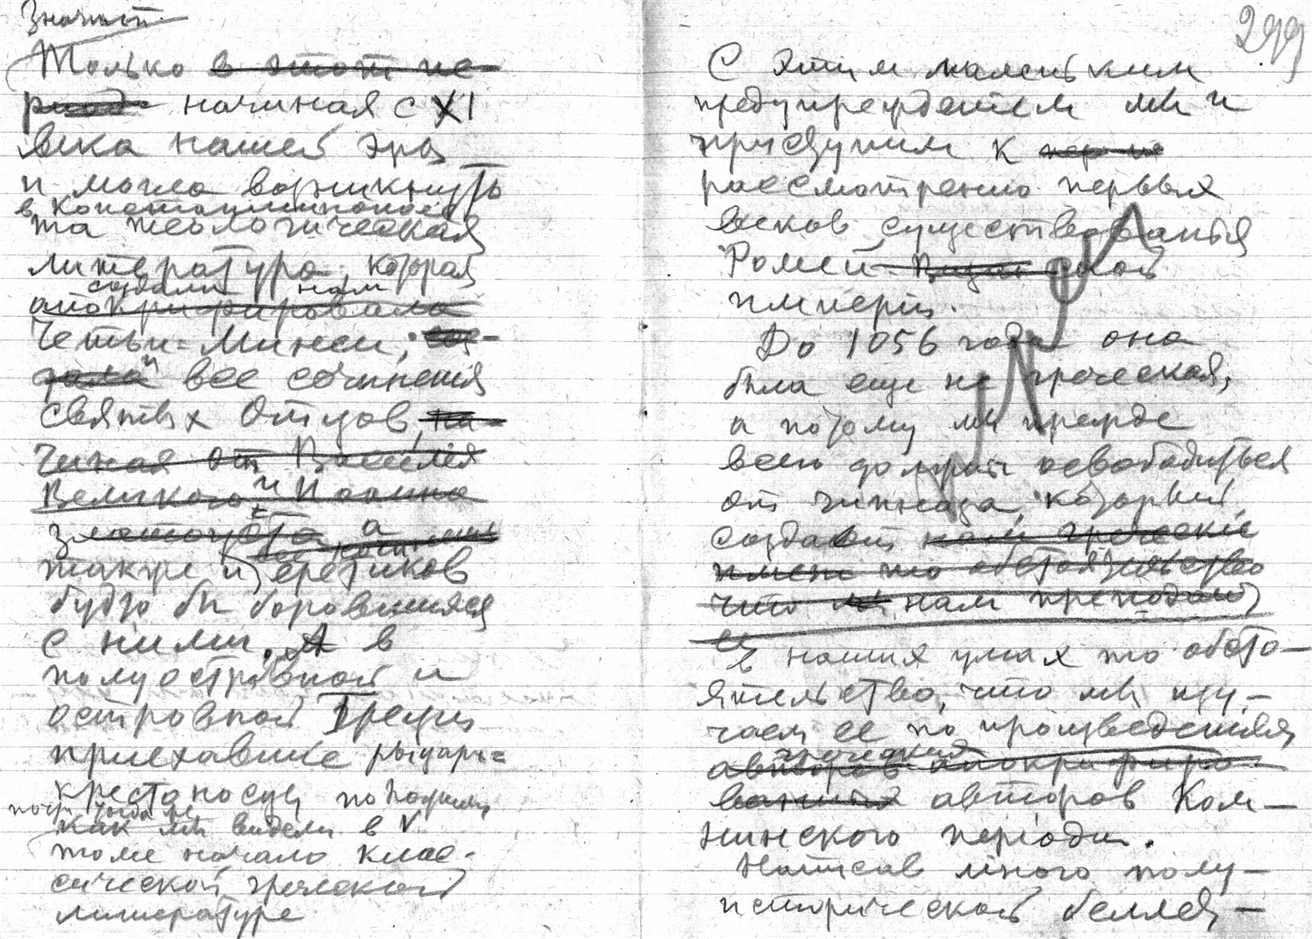 Значит
Только в этот пе-
риод начиная с XI
века нашей эры
и могла возникнуть
в Константинополе
та теологическая
литература, которая
создали нам
апокрифировала
Четьи-Минеи,
и все сочинения
святых Отцов, на-
чиная от Василия
Великого и Иоанна
Златоуста а
также и еретиков
будто бы боровшихся
с ними. А в
полуостровной и
островной Греции
приехавшие рыцари-
крестоносцы положили
почти тогда же
как мы видели в V
томе начало клас-
сической греческой
литературе
299
С этим маленьким
предупреждением мы и
приступим к
рассмотрению первых
веков существованья
Ромейской
империи.
До 1056 года она
была еще не греческая,
а потому мы прежде
всего должны освободиться
от гипноза, который
создают нам греческие
имена то обстоятельство
что мы нам преподают
ее
в наших умах то обсто-
ятельство, что мы изу-
чаем ее по произведениям
греческих
авторов апокрифиро-
ванных авторов Ком-
нинского периода.
Написав много полу-
исторической беллет-